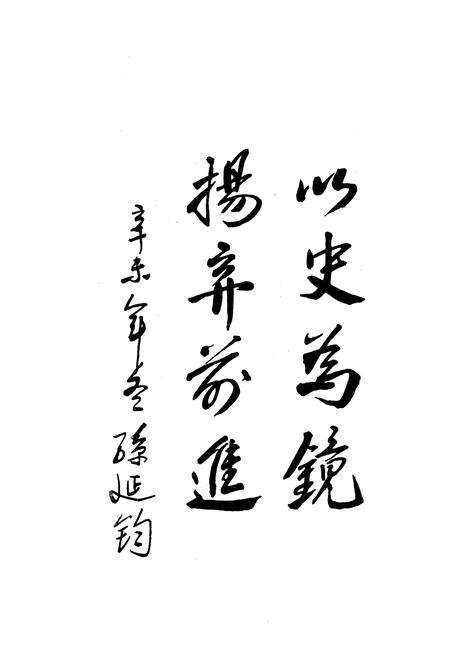 以史為鏡
揚弃前進
辛未年冬 孫延鈞